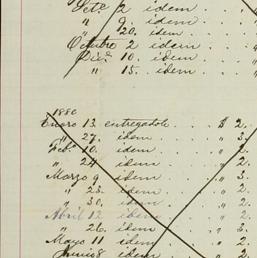 Set.e 2 idem . . .
" 9. idem . . .
" 20. idem . . .
Octubre 2 idem . . .
Dic.e 10. idem . . .
" 15. idem . . .
1886
Enero 13. entregadole . . . $ 2.
" 27. idem . . . " 3.
Feb.o 10. idem . . . " 2.
" 24 idem . . . " 2.
Marzo 9 idem . . . " 3.
" 23. idem . . . " 2.
" 30. idem . . . " 2.
Abril 12 idem . . . " 2.
" 26. idem . . . " 3.
Mayo 11 idem . . . " 2.
Junio 8 idem . . . " 2.